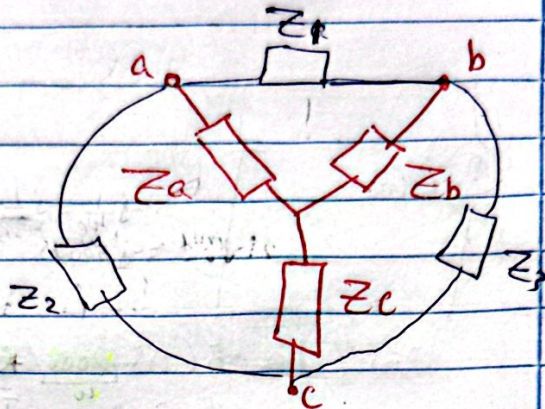 Z1
a
b
Za
Zb
Z2
Zc
c